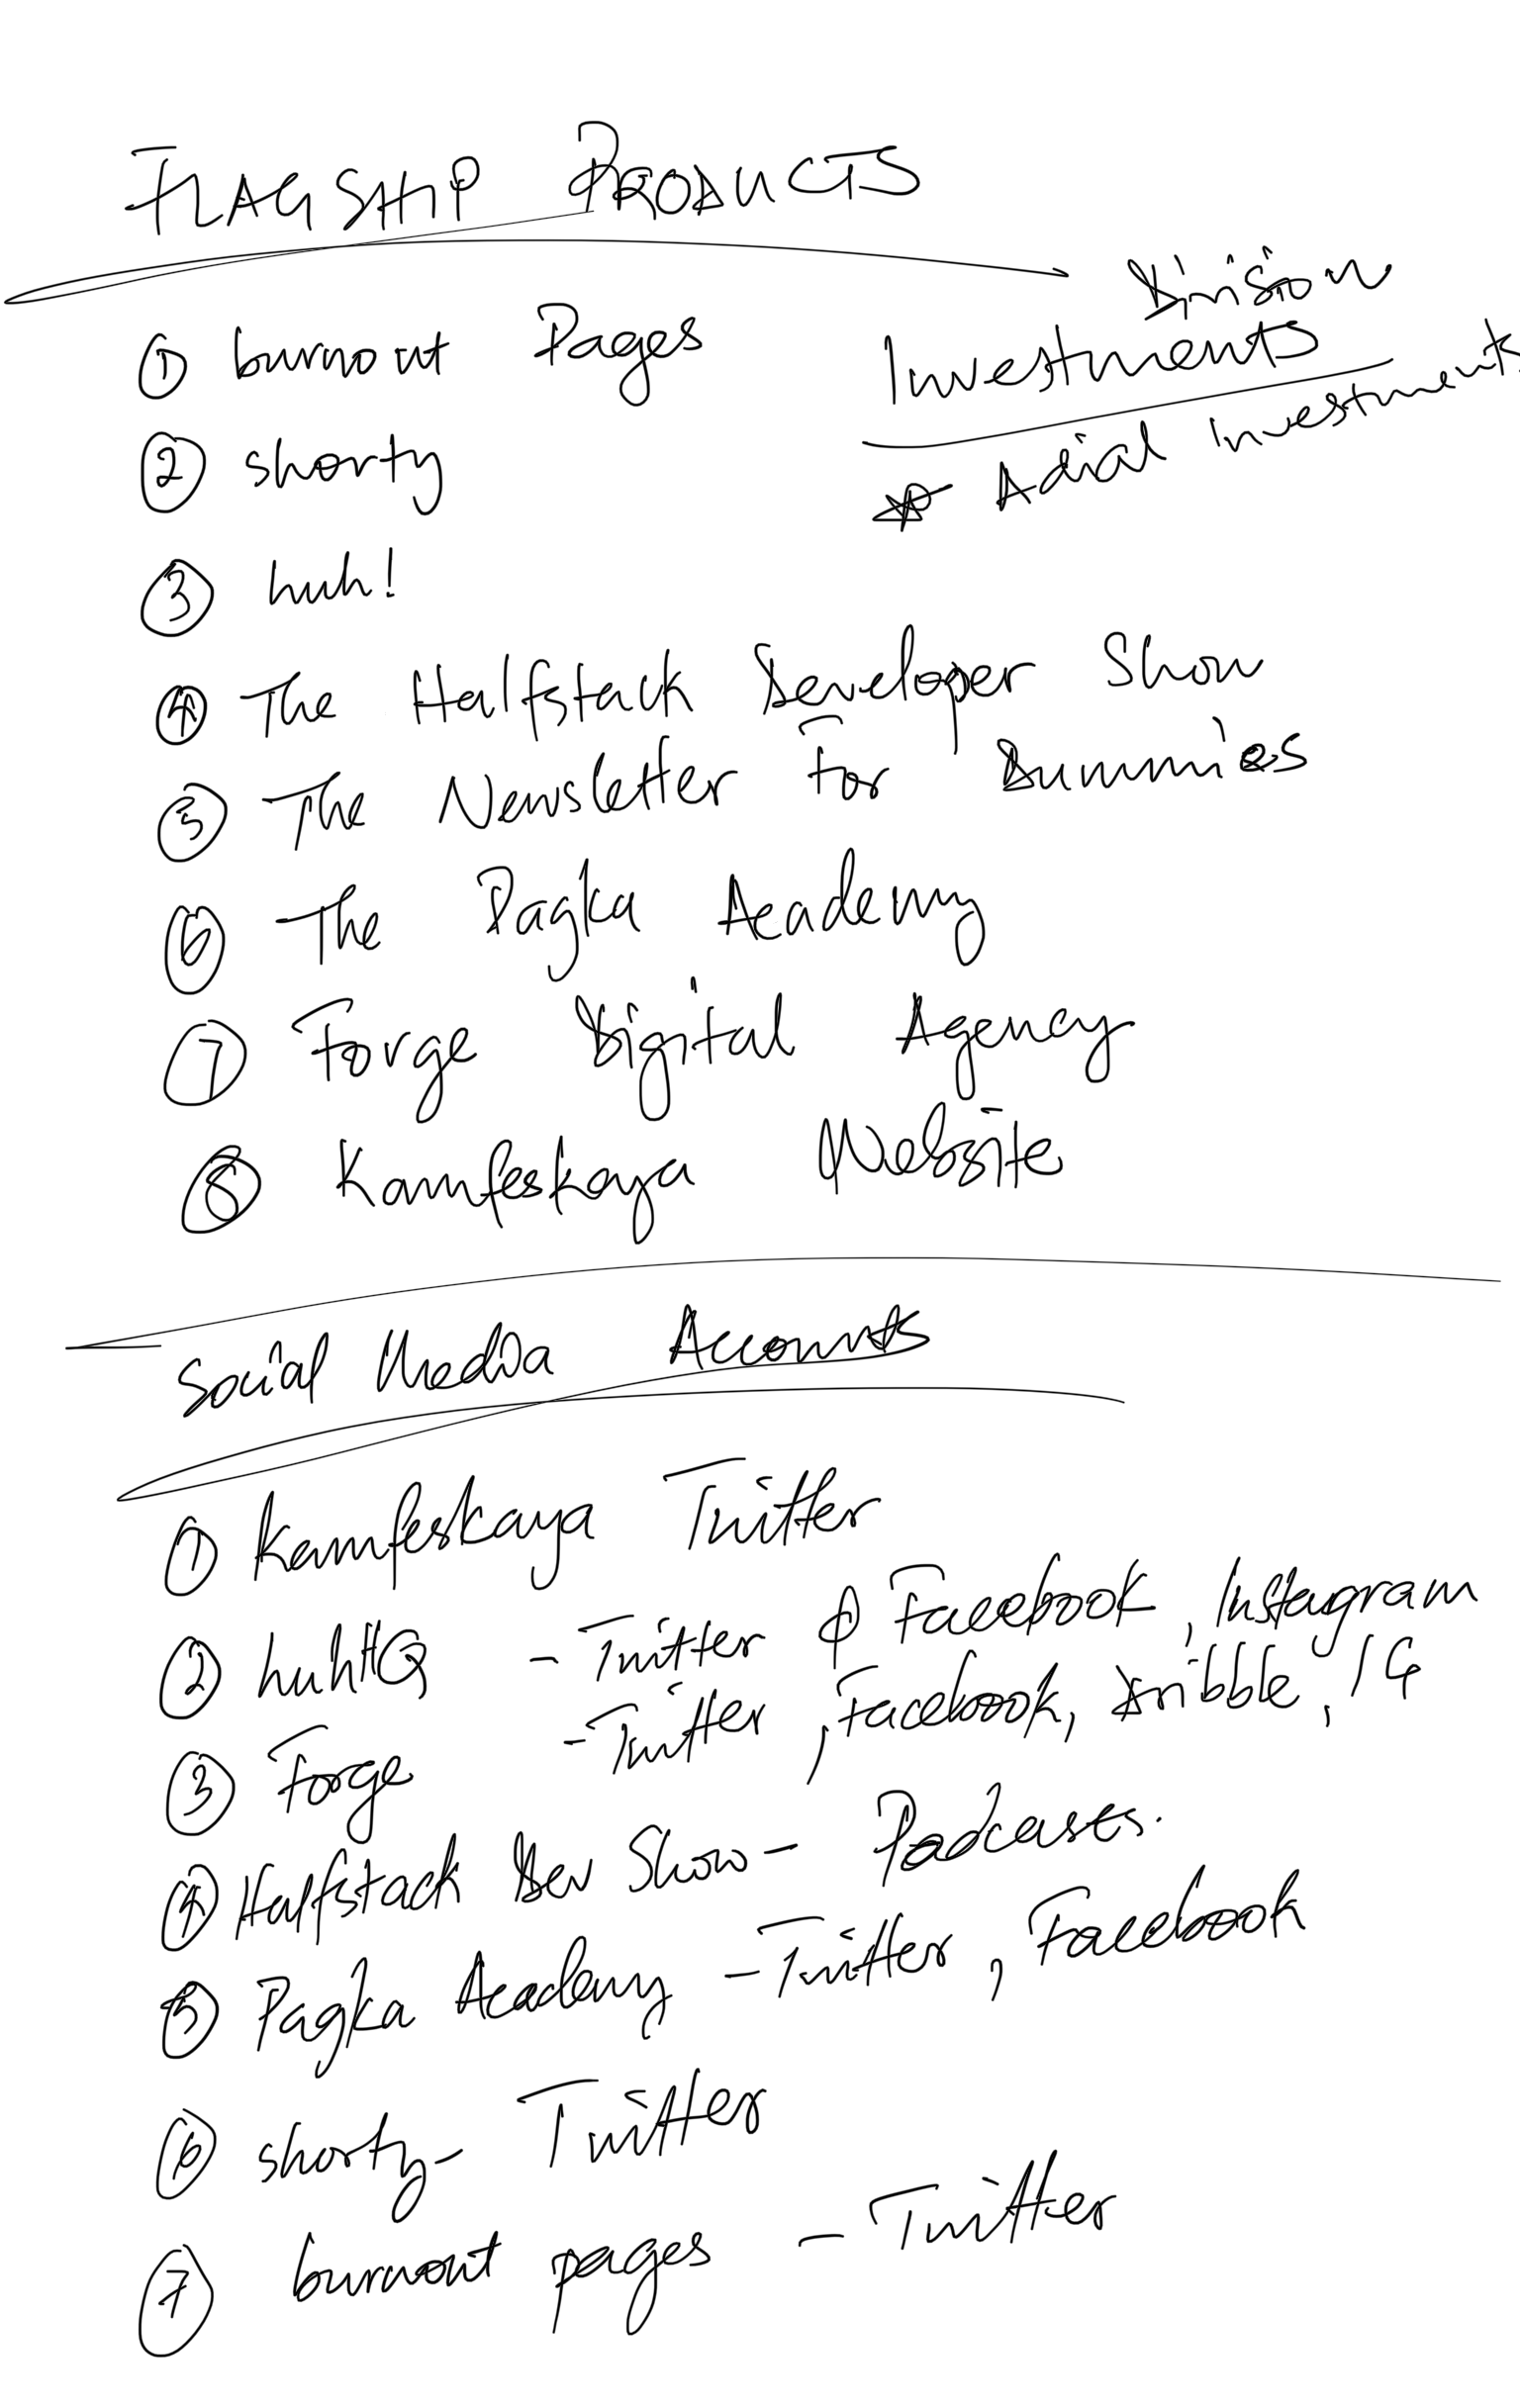 FLAGSHIP PRODUCTS
① burnout Pages
② shorty
③ huh!
④ The Halfstack Developer Show
⑤ The Newsletter For Dummies
⑥ The Pagka Academy
⑦ Forge Digital Agency
⑧ Kamfeskaya Website
Division
Investments
☆ Adial Investments
Social Media Accounts
① Kamfeskaya Twitter
② huhHQ - Twitter & Facebook, Instagram
③ Forge - Twitter, Facebook, Dribble, IG
④ Halfstack Dev Show - Podcasts.
⑤ Pagka Academy - Twitter, Facebook
⑥ shorty - Twitter
⑦ burnout pages - Twitter